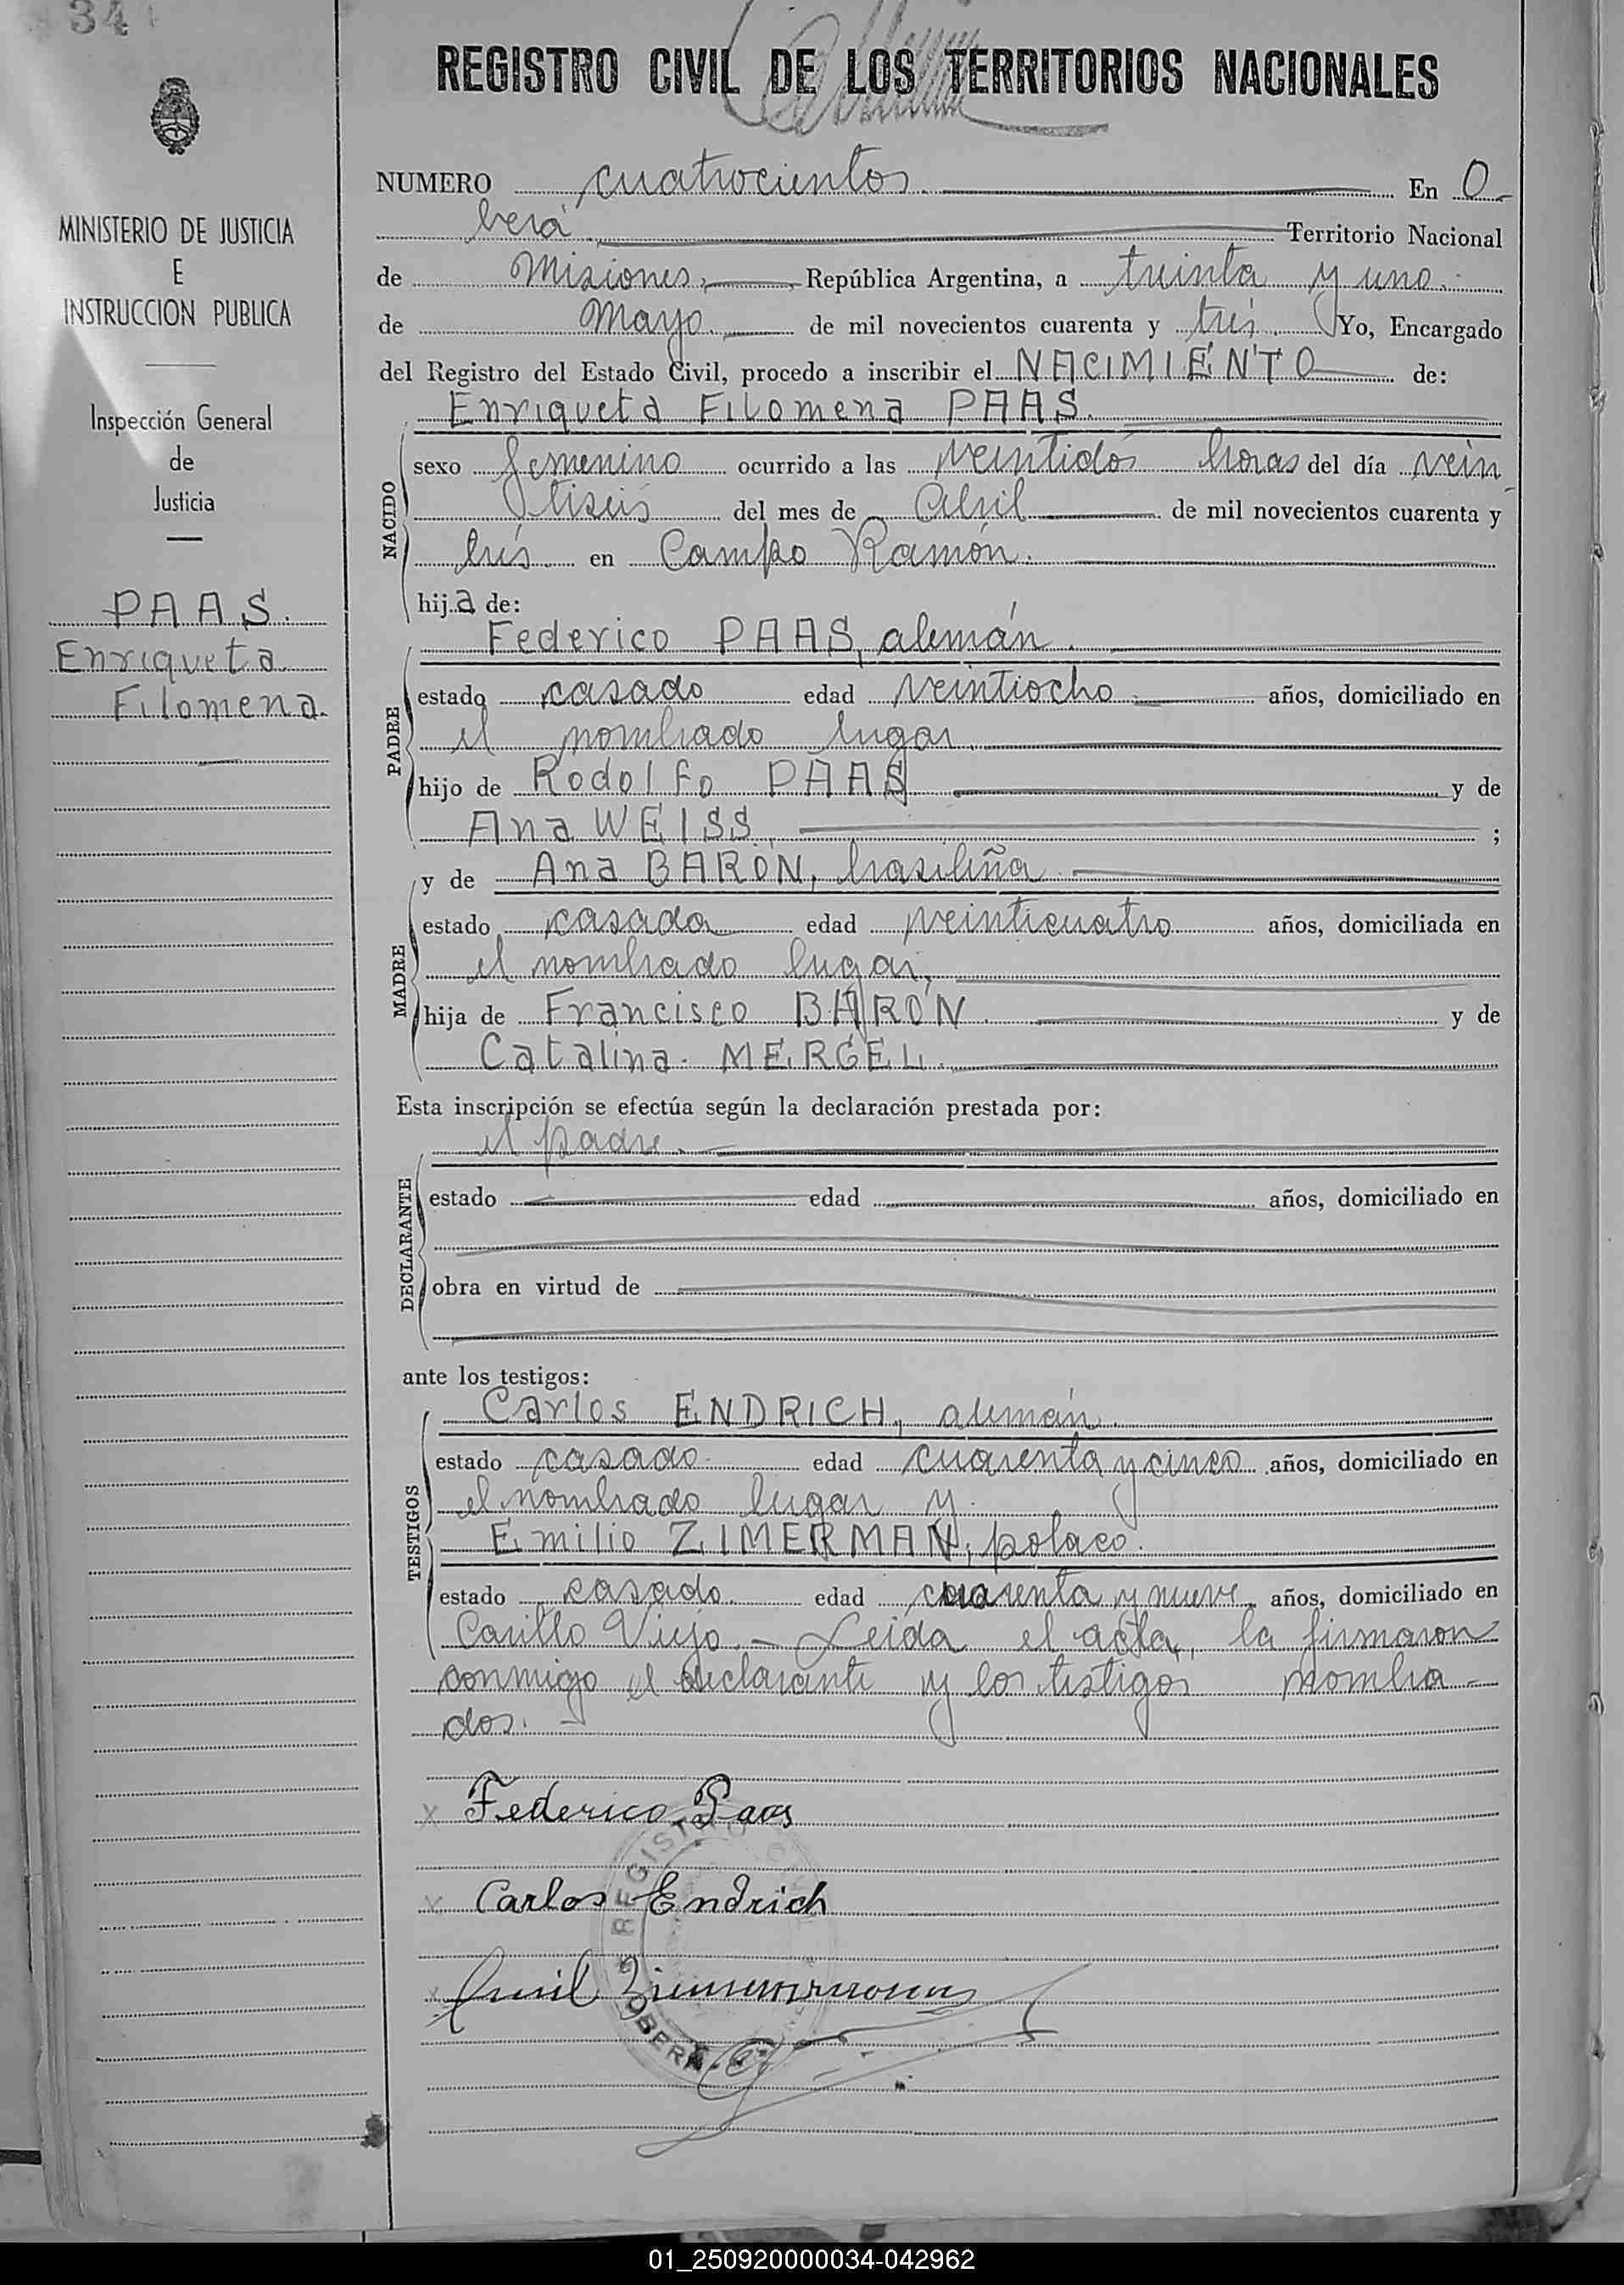 34
REGISTRO CIVIL DE LOS TERRITORIOS NACIONALES
MINISTERIO DE JUSTICIA
E
INSTRUCCION PUBLICA
Inspección General
de
Justicia
PAAS.
Enriqueta
Filomena.
NUMERO cuatrocientos. En O
berá Territorio Nacional
de Misiones, República Argentina, a treinta y uno.
de Mayo. de mil novecientos cuarenta y trés. Yo, Encargado
del Registro del Estado Civil, procedo a inscribir el NACIMIENTO de:
Enriqueta Filomena PAAS.
NACIDO
sexo femenino ocurrido a las veintidós horas del día vein
tiseis del mes de Abril de mil novecientos cuarenta y
trés. en Campo Ramón.
hija de:
Federico PAAS, alemán.
PADRE
estado casado edad veintiocho años, domiciliado en
el nombrado lugar.
hijo de Rodolfo PAAS y de
Ana WEISS. ;
y de Ana BARÓN, brasileña
MADRE
estado casada edad veinticuatro años, domiciliada en
el nombrado lugar,
hija de Francisco BARÓN. y de
Catalina. MERGEL.
Esta inscripción se efectúa según la declaración prestada por:
el padre.
DECLARANTE
estado edad años, domiciliado en
obra en virtud de
ante los testigos:
Carlos ENDRICH, alemán.
TESTIGOS
estado casado. edad cuarenta y cinco años, domiciliado en
el nombrado lugar y.
Emilio ZIMERMAN, polaco.
estado casado. edad cuarenta y nueve años, domiciliado en
Viejo.- Leida el acta, la firmaron
conmigo el declarante y los testigos nombra-
dos.-
x Federico Paas
x Carlos Endrich
x Emil Zimmermann
REGISTRO
OBERÁ
01_250920000034-042962